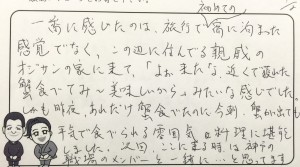 初めての
一番に感じたのは、旅行で宿に泊まった
感覚でなく、この辺に住んでる親戚の
オジサンの家に来て、「よぉ来たな、近くで獲れた
蟹食てみ～美味しいから」みたいな感じでした
しかも昨夜、あれだけ蟹食べたのに今朝、蟹が出ても
平気で食べられる雰囲気と料理に堪能
しました。次回、ここに来る時は神戸の
職場のメンバーと一緒に…と思ってます